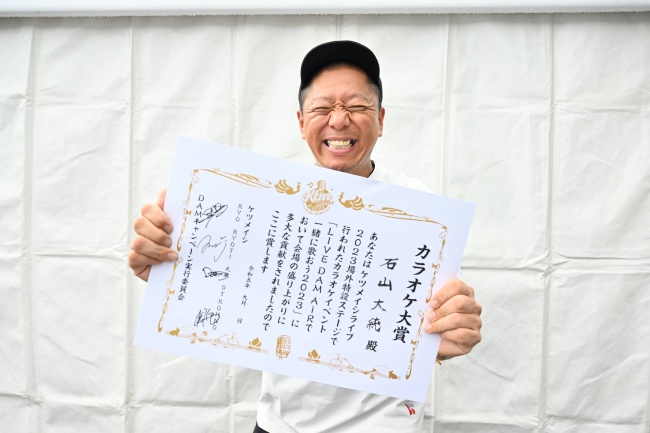 カラオケ大賞
石山大純 殿
あなたはケツメイシライブ
2023場外特設ステージで
行われたカラオケイベント
「LIVE DAM AiRで
一緒に歌おう2023」に
おいて会場の盛り上がりに
多大な貢献をされましたので
ここに賞します
令和五年 九月 日
ケツメイシ
RYO RYOJI 大蔵 DJ KOHNO
DAMキャンペーン実行委員会